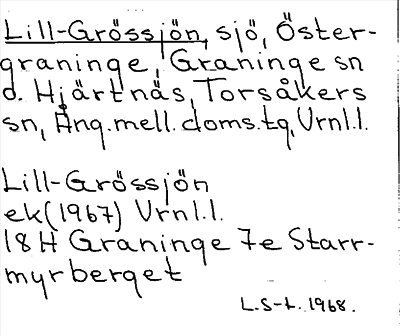 Lill-Grössjön, sjö, Öster-
graninge, Graninge sn
o. Hjärtnäs, Torsåkers
sn, Ång.mell.doms.tg, Vrnl.l.
Lill-Grössjön
ek(1967) Vrnl.l.
18H Graninge 7e Starr-
myrberget
L.S-t. 1968.